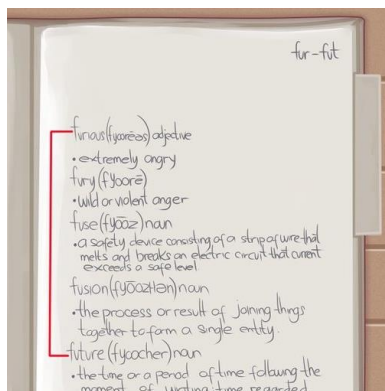 fur-fut
furious (fyooreəs) adjective
• extremely angry
fury (fyoorē)
• wild or violent anger
fuse (fyōōz) noun
• a safety device consisting of a strip of wire that
melts and breaks an electric circuit that current
exceeds a safe level.
fusion (fyōōzHən) noun
• the process or result of joining things
together to form a single entity.
future (fyoocher) noun
• the time or a period of time following the
moment of writing time regarded